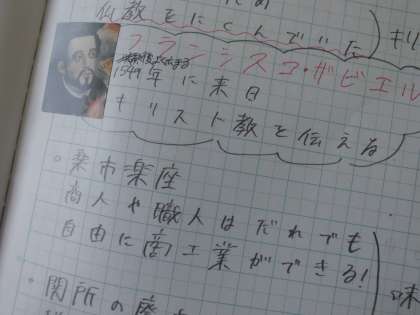 仏教をにくんでいた
キリ
フランシスコ・ザビエル
1549年に来日
キリスト教を伝える
。楽市楽座
商人や職人はだれでも
自由に商工業ができる!
・関所の廃